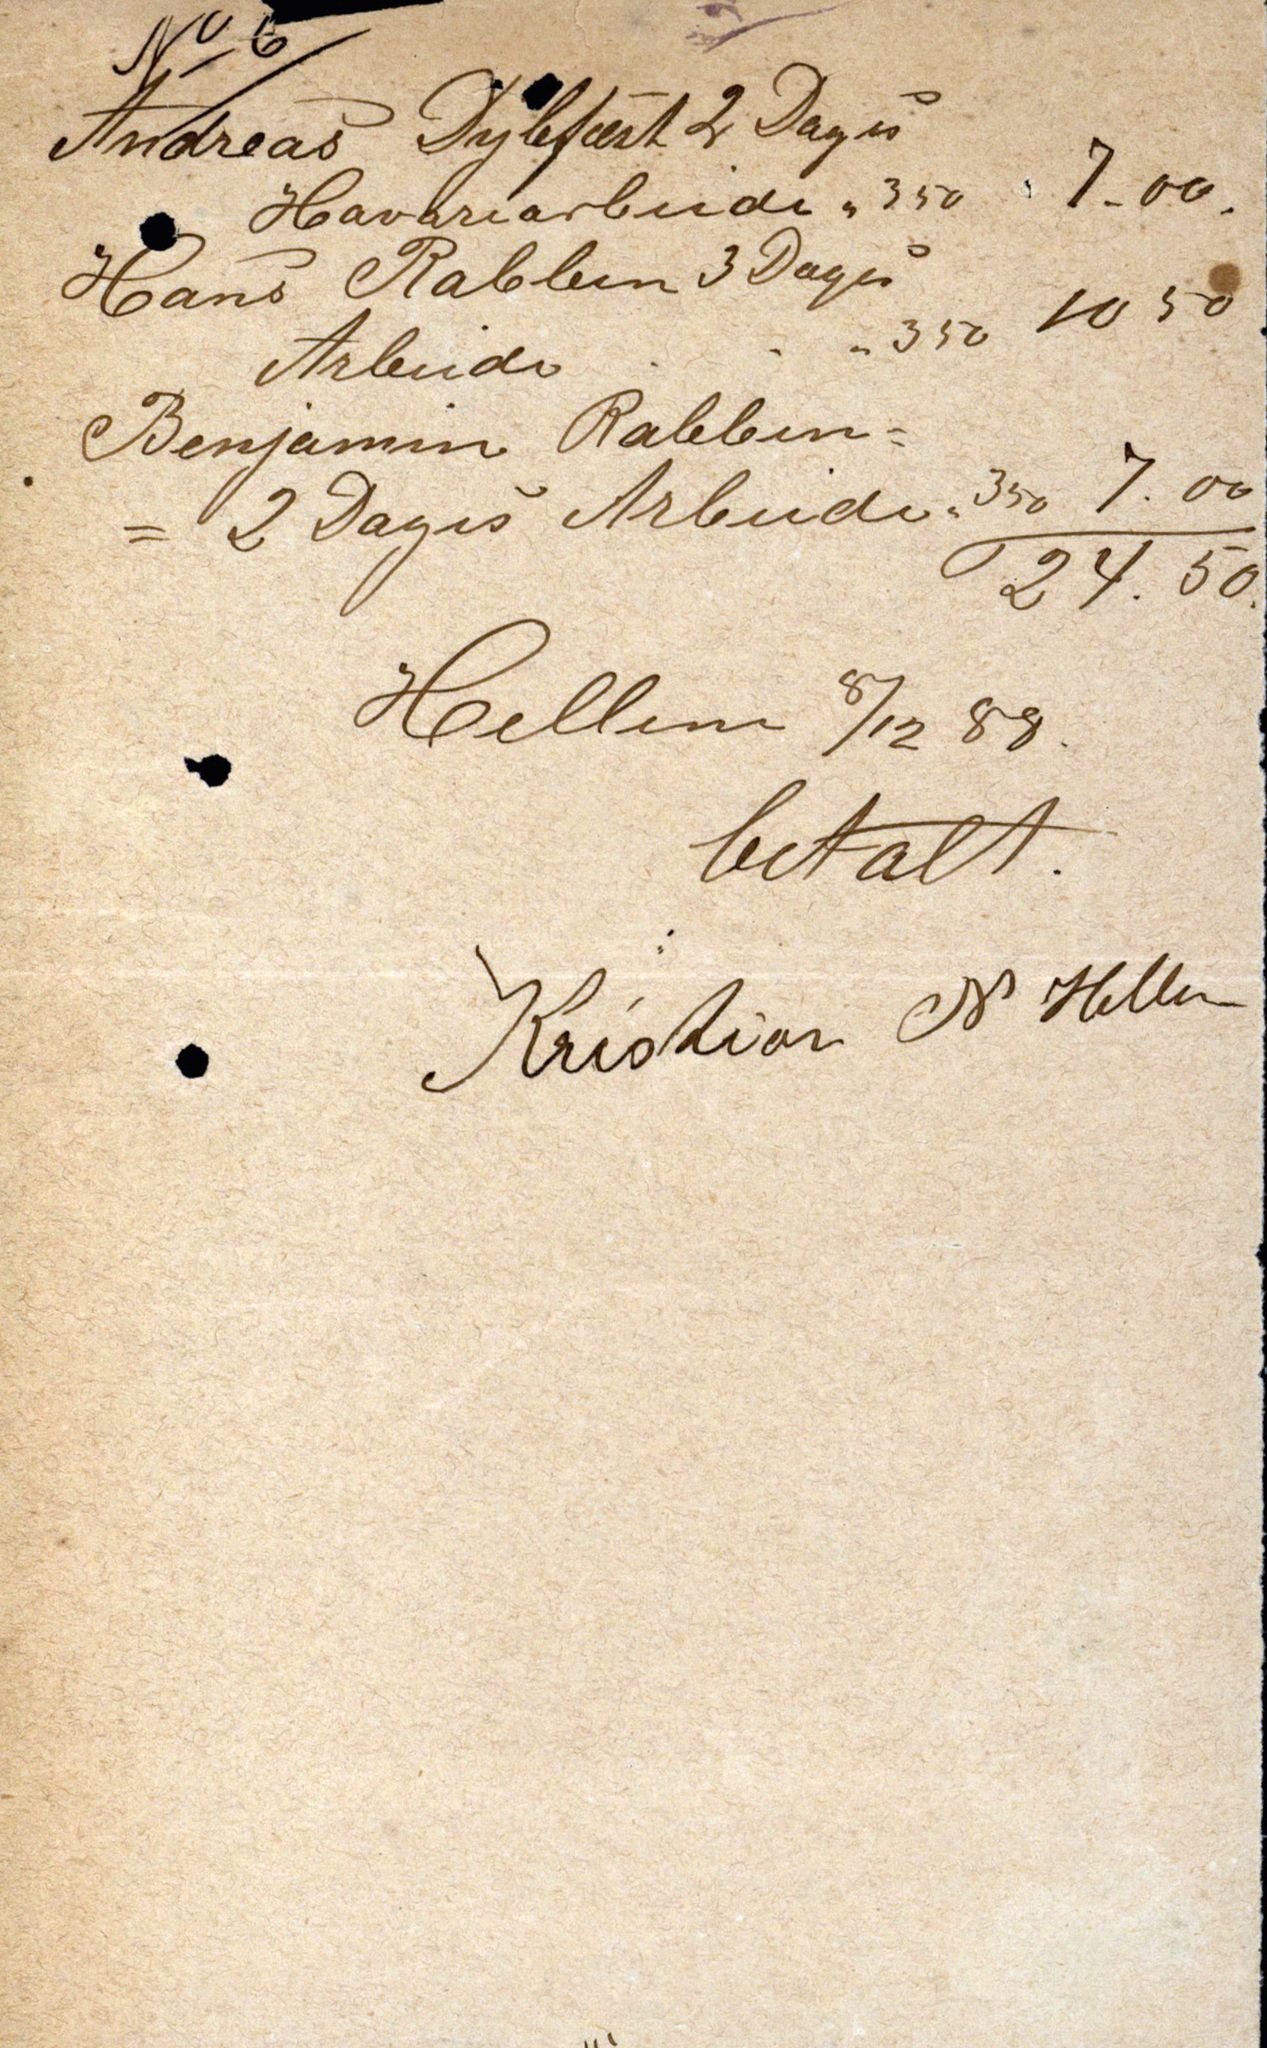 No 6
Andreas Dybfæst 2 Dages
Havariarbeide „ 3 50 7-00.
Hans Rabben 3 Dages
Arbeide „ 3 50 10 50
Benjamin Rabben =
= 2 Dages Arbeide „ 3 50 7.00
24.50.
Hellem 8/12 88.
betalt.
Kristian N Hellem